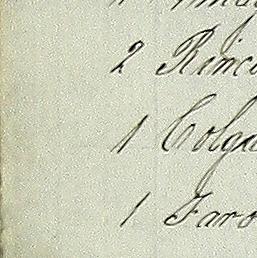 2 Rinco
1 Colga
1 Faro